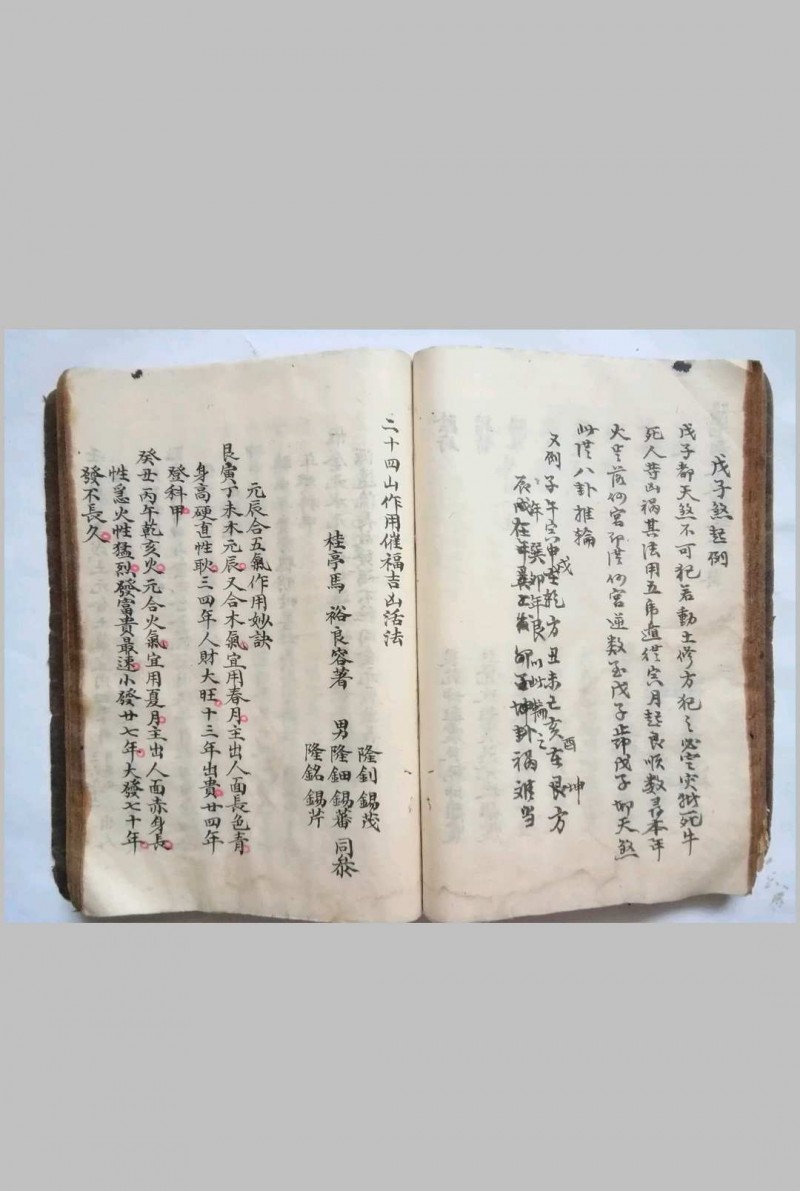 戊子煞起例
戊子都天煞不可犯若動土修方犯之必定灾
死人等凶禍其法用五虎遁從寅月起良順数尋本年
落何宮即從何宮逆数至戊子止即戊子都天煞
此從八卦推輪
又例子午寅申 戌乾方丑未巳亥酉在艮坤方
年癸卯年艮以此輪之
辰戌在 坤卦禍难当
二十四山作用催福吉凶活法
桂亭馬 裕良容著 男
隆釗錫茂
隆鈿錫蕃同叅
隆銘錫芹
元辰合五氣作用妙訣
艮寅丁未木元辰又合木氣宜用春月主出人面長色青
身高硬直性耿三四年人財大旺十三年出貴廿四年
登科甲
癸丑丙午乾亥火元合火氣宜用夏月主出人面赤身長
性急火性猛烈發富貴最速小發廿七年大發七十年
發不長久